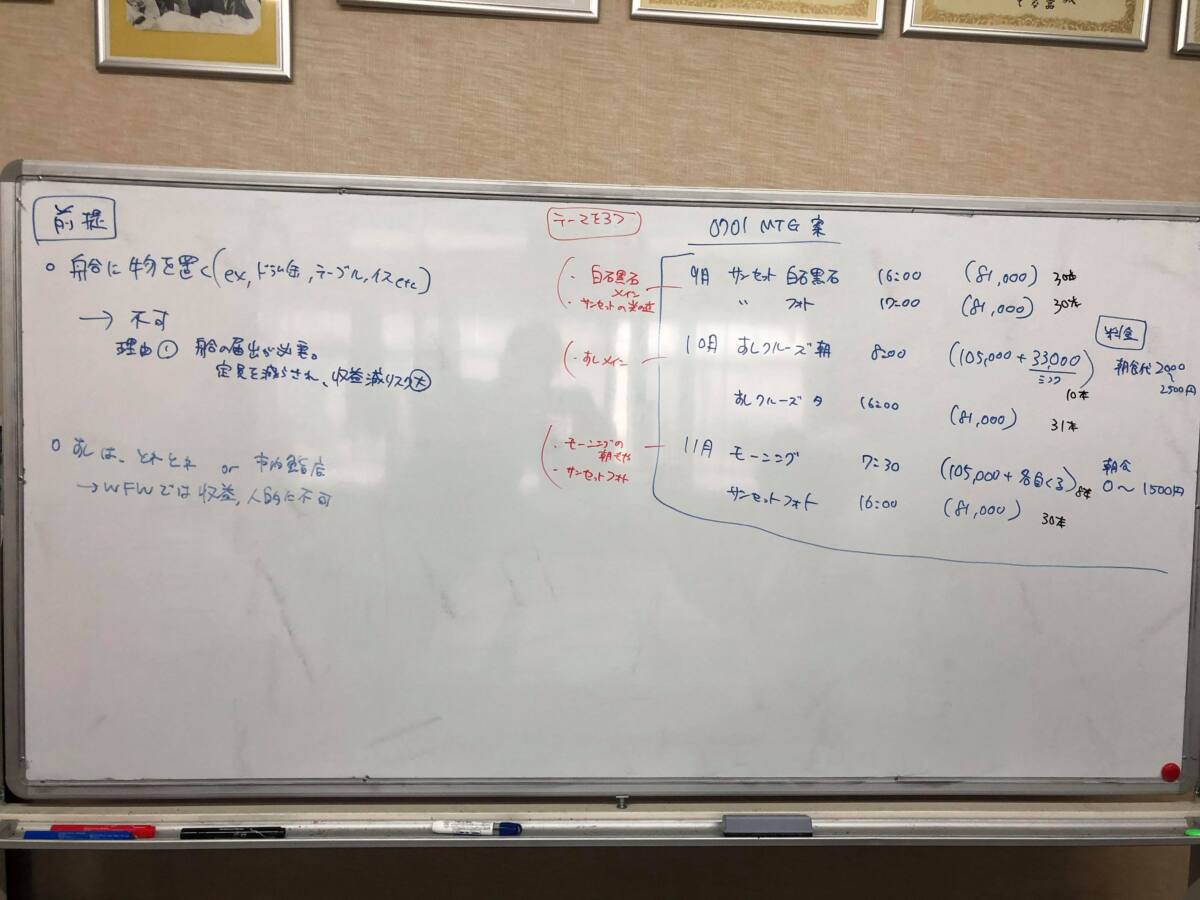 前提
○ 船に物を置く(ex, ドラム缶, テーブル, イス etc)
→ 不可
理由① 船の届出が必要。
定員を減らされ、収益減リスク大
○ すしは、とれとれ or 市内鮨店
→WFWでは収益, 人的に不可
テーマを3つ
・白石黒石
メイン
・サンセットの光の道
・すしメイン
・モーニングの
朝モヤ
・サンセットフォト
0701 MTG 案
9月 サンセット 白石黒石 16:00 (81,000) 30本
〃 フォト 17:00 (81,000) 30本
10月 すしクルーズ 朝 8:00 (105,000 + 33,000) 10本
ミンク
すしクルーズ 夕 16:00 (81,000) 31本
11月 モーニング 7:30 (105,000 + 各自くる) 8本
サンセットフォト 16:00 (81,000) 30本
料金
朝食代 2000
〜2500円
朝食
0〜1500円